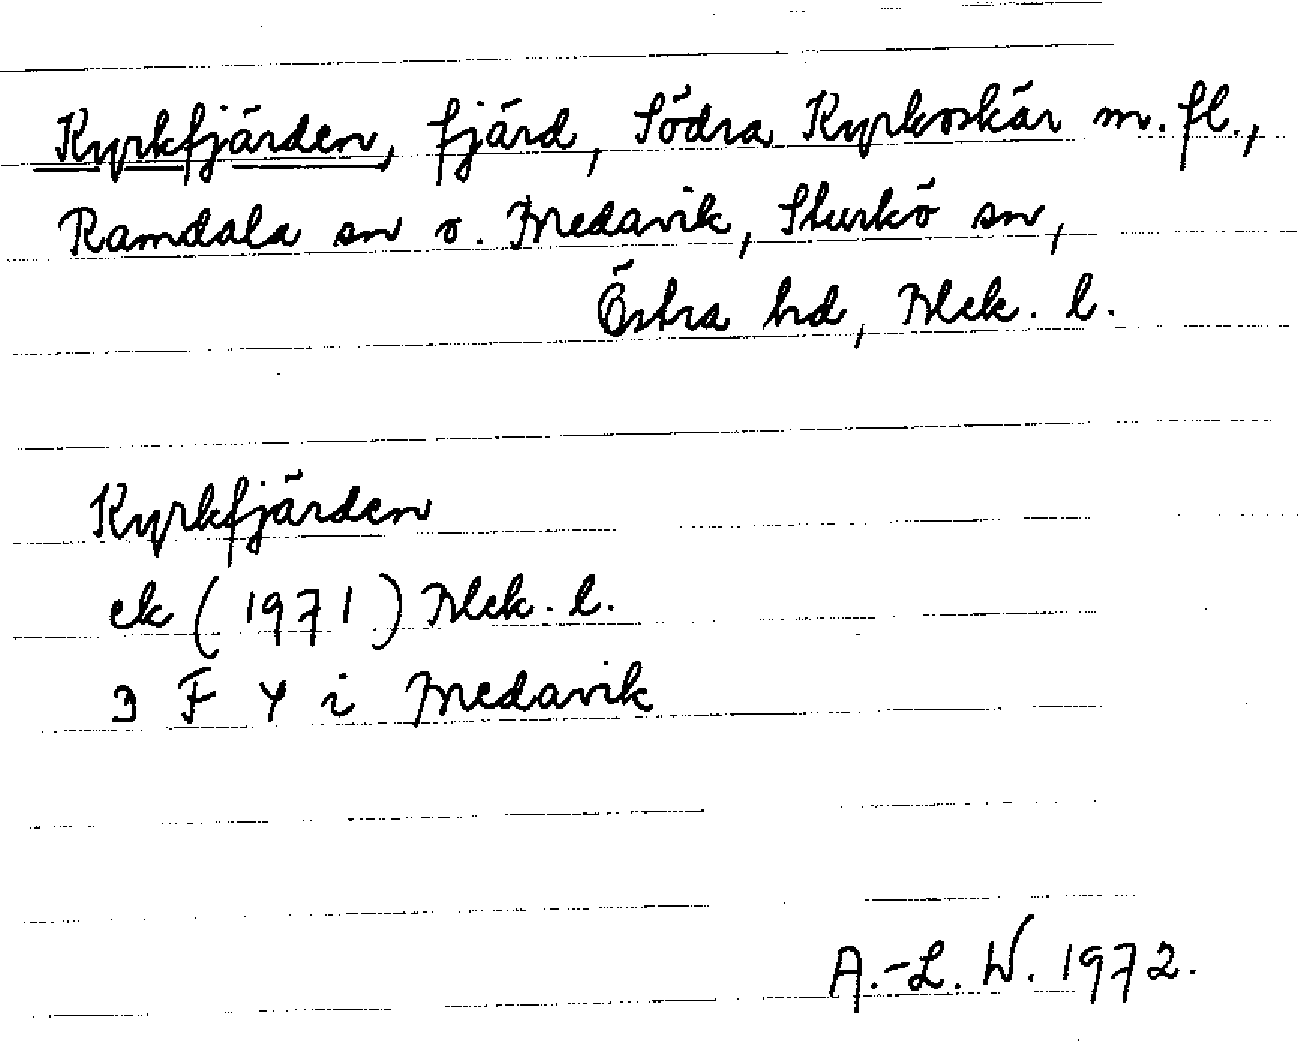 Kyrkfjärden, fjärd, Södra Kyrkoskär m. fl.,
Ramdala sn o. Bredavik, Sturkö sn,
Östra hd, Blek. l.
Kyrkfjärden
ek (1971) Blek. l.
3 F Y i Bredavik
A.-L. W. 1972.